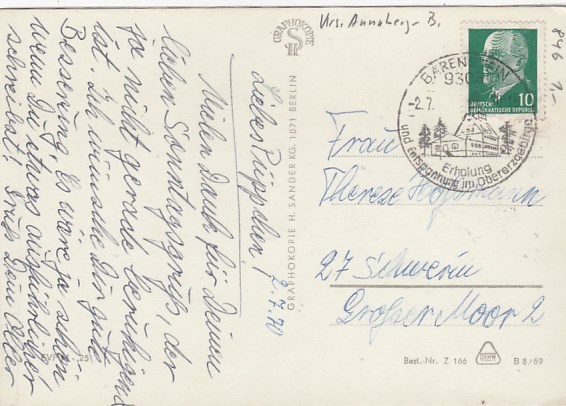 Krs. Annaberg-B.
846
1,-
GRAPHOKOPIE
H
S
2.7.70
Liebes Püppchen!
Vielen Dank für Deinen
lieben Sonntagsgruß, der
ja nicht gerade beruhigend
ist. Ich wünsche Dir gute
Besserung. Es wäre ja schön,
wenn Du etwas ausführlicher
schreibst! Gruß Dein Alter
EVP M -,25
GRAPHOKOPIE H. SANDER KG, 1071 BERLIN
BÄRENSTEIN
930
-2.7.
Erholung
und Entspannung im Obererzgebirge
DEUTSCHE
DEMOKRATISCHE REPUBLIK
10
Frau
Therese
27 Schwerin
Großer Moor 2
Best.-Nr. Z 166
B 8/69